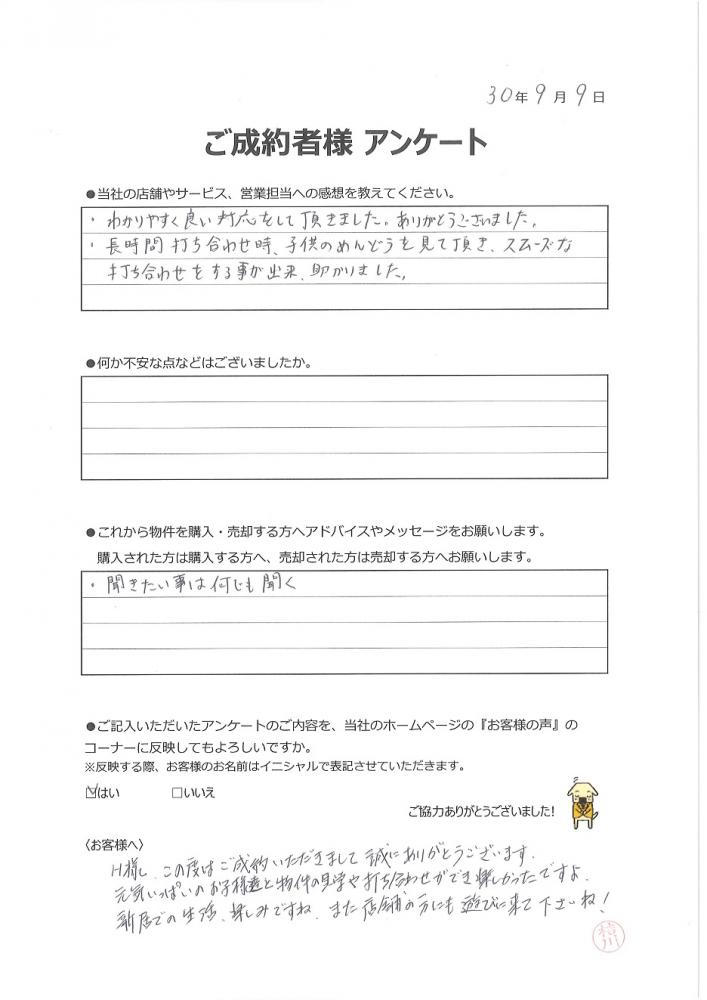 30年 9月 9日
ご成約者様 アンケート
●当社の店舗やサービス、営業担当への感想を教えてください。
・わかりやすく良い対応をして頂きました。ありがとうございました。
・長時間打ち合わせ時、子供のめんどうを見て頂き、スムーズな
打ち合わせをする事が出来、助かりました。
●何か不安な点などはございましたか。
●これから物件を購入・売却する方へアドバイスやメッセージをお願いします。
購入された方は購入する方へ、売却された方は売却する方へお願いします。
・聞きたい事は何でも聞く
●ご記入いただいたアンケートのご内容を、当社のホームページの『お客様の声』の
コーナーに反映してもよろしいですか。
※反映する際、お客様のお名前はイニシャルで表記させていただきます。
☑はい □いいえ
ご協力ありがとうございました!
〈お客様へ〉
H様、この度はご成約いただきまして誠にありがとうございます。
元気いっぱいのお子様達と物件の見学や打ち合わせができ楽しかったですよ。
新居での生活、楽しみですね。また店舗の方にも遊びに来て下さいね!